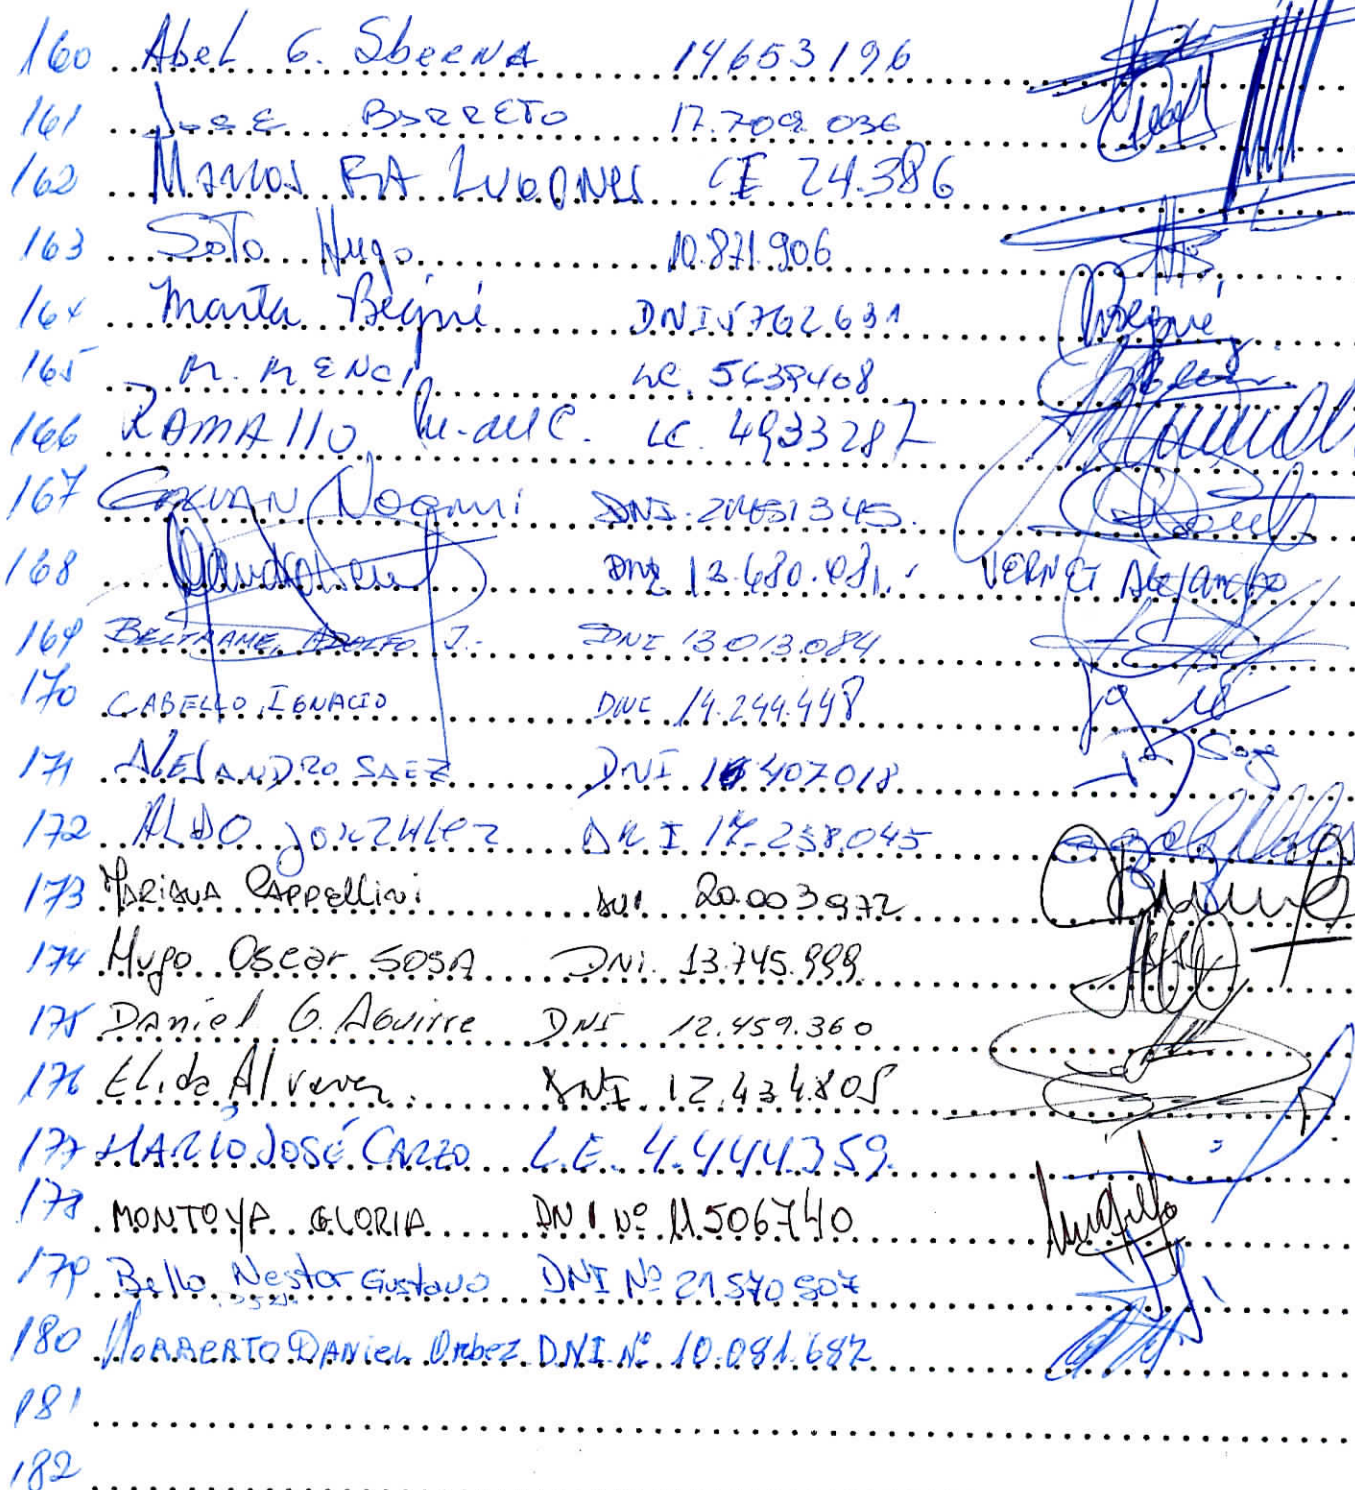 160 Abel G. Sberna 14653196
161 Jose BARRETO 17.709.036
162 24.386
163 Soto Hugo 10.871.906
164 Marta Begné DNI 5762631 Begné
165 M. MENCI LC. 5639408
166 RAMALLO M. del C. LC. 4933287
167 Noemi DNI
168 DNI VERNET Alejandro
169 BELTRAME, ADOLFO J.- DNI 13013084
170 CABELLO, IGNACIO DNI 14.244.448
171 ALEJANDRO SAEZ DNI 16407018
172 ALDO gonzalez DNI 17.238.045
173 MARIANA CAPPELLINI DNI 20.003972
174 Hugo Oscar SOSA DNI. 13.745.999
175 Daniel G. Aguirre DNI 12.459.360
176 Elida Alvarez. DNI 12.434.805
177 MARIO JOSÉ CARZO L.E. 4.444.359
178 MONTOYA GLORIA DNI Nº 11.506740
179 Bello Nestor Gustavo DNI Nº 21570507
180 NORBERTO DANIEL Orbez DNI Nº 10.081.682
181
182